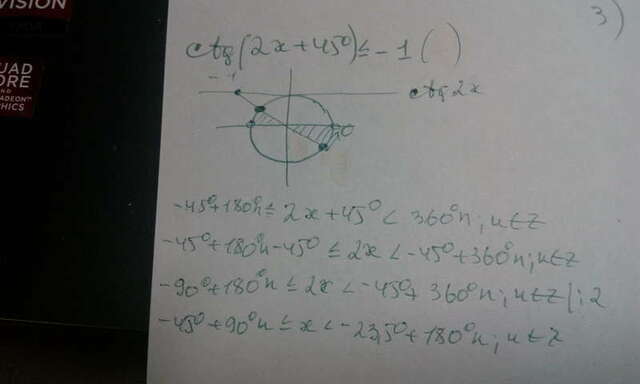 VISION
QUAD
CORE
AND
RADEON™
GRAPHICS
3)
ctg(2x+45°)≤-1 ( )
-1
ctg 2x
0
-45°+180°n≤ 2x+45° < 360°n; n∈Z
-45°+180°n-45° ≤ 2x < -45°+360°n; n∈Z
-90°+180°n ≤ 2x < -45°+ 360°n; n∈Z |:2
-45°+90°n ≤ x < -23,5°+180°n; n∈Z